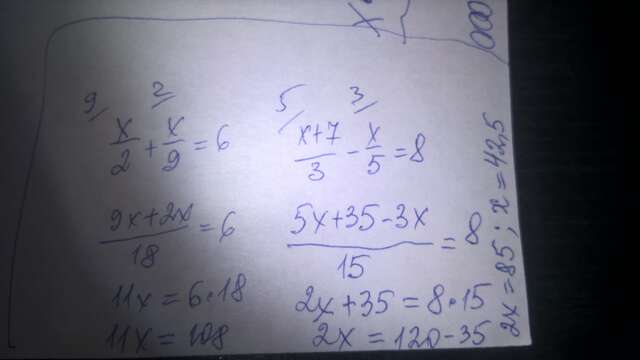 9/ x/2 + 2/ x/9 = 6
(9x+2x)/18 = 6
11x = 6·18
11x = 108
5/ (x+7)/3 - 3/ x/5 = 8
(5x+35-3x)/15 = 8
2x+35 = 8·15
2x = 120-35
2x = 85 ; x = 42,5